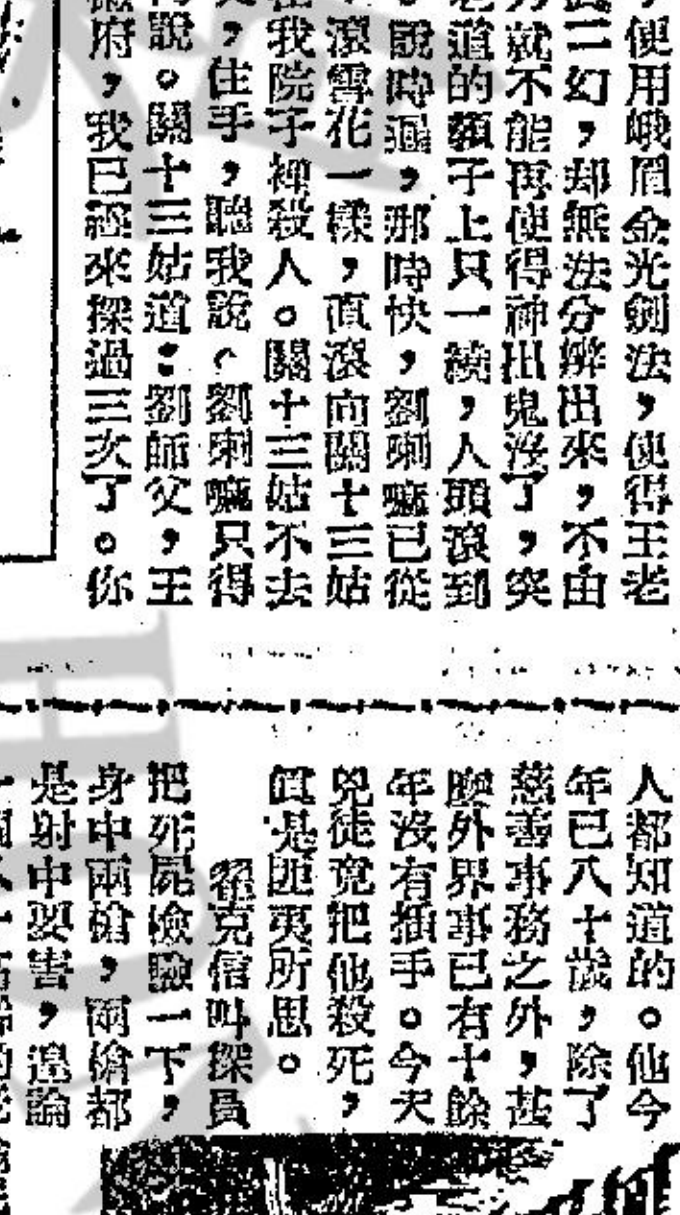 便用峨眉金光劍法，使得王老
二幻，却無法分辨出來，不由
就不能再使得神出鬼沒了，突
道的頸子上只一繞，人頭滾到
說時遲，那時快，劉喇嘛已從
滾雪花一樣，直滾向關十三姑
我院子裡殺人。關十三姑不去
，住手，聽我說。劉喇嘛只得
說。關十三姑道：劉師父，王
府，我已經來探過三次了。你
人都知道的。他今
年已八十歲，除了
慈善事務之外，甚
麼外界事已有十餘
年沒有插手。今天
兇徒竟把他殺死，
眞是匪夷所思。
翟克信叫探員
把死屍檢驗一下，
身中兩槍，兩槍都
是射中要害，遑論